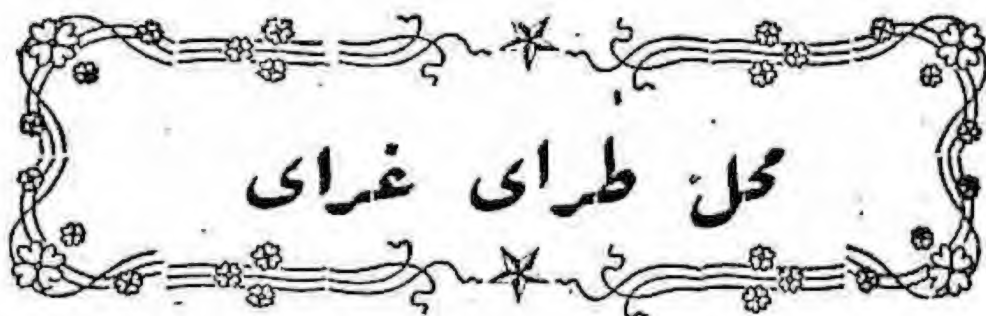 محل طرای غرای